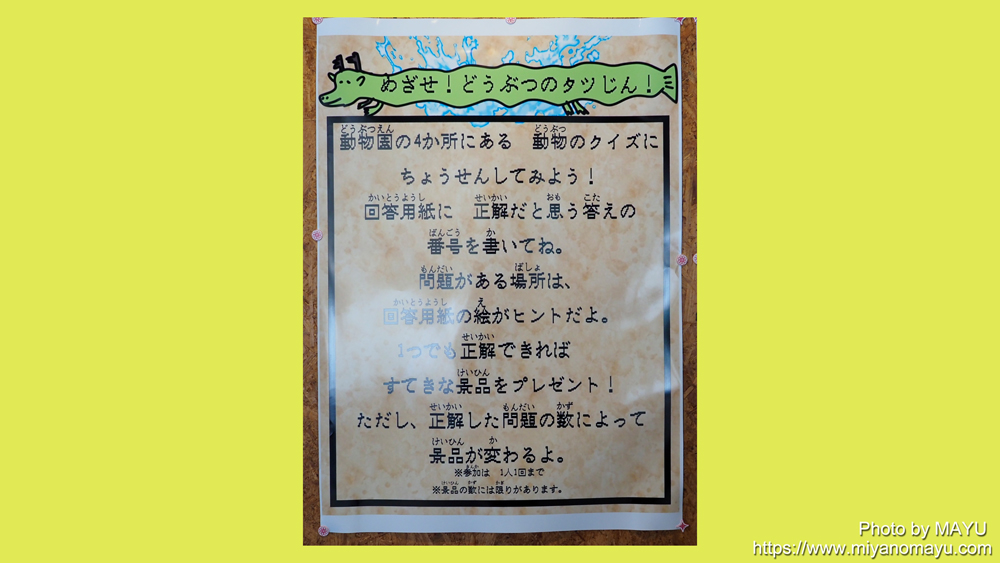 めざせ！どうぶつのタツじん！
動物園の4か所にある　動物のクイズに
ちょうせんしてみよう！
回答用紙に　正解だと思う答えの
番号を書いてね。
問題がある場所は、
回答用紙の絵がヒントだよ。
1つでも正解できれば
すてきな景品をプレゼント！
ただし、正解した問題の数によって
景品が変わるよ。
※参加は　1人1回まで
※景品の数には限りがあります。
Photo by MAYU
https://www.miyanomayu.com